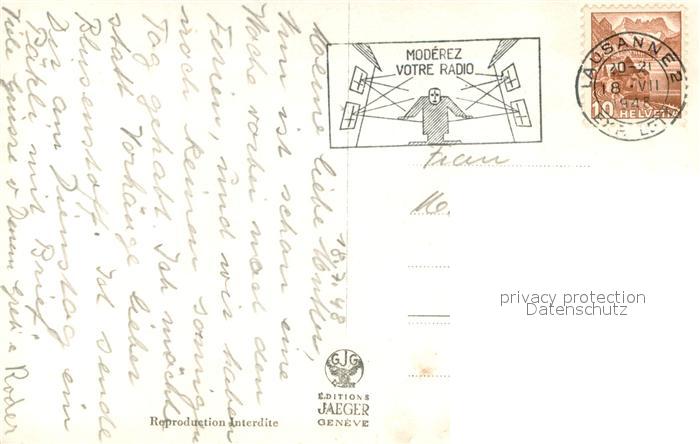 MODÉREZ
VOTRE RADIO
LAUSANNE 2
20-21
18 VII
1948
EXP. LET
10 HELVETIA
Frau
18.7.48
Meine liebe Mutter,
Nun ist schon eine
Woche vorbei von den
Ferien, und wir haben
noch keinen sonnigen
Tag gehabt. Ich möchte
statt Vorhänge lieber
Blusenstoff. Ich sende
Dir am Dienstag ein
Päkli mit Brief
Viele Grüsse v. Deinen
GJG
ÉDITIONS
JAEGER
GENÈVE
Reproduction Interdite
privacy protection
Datenschutz